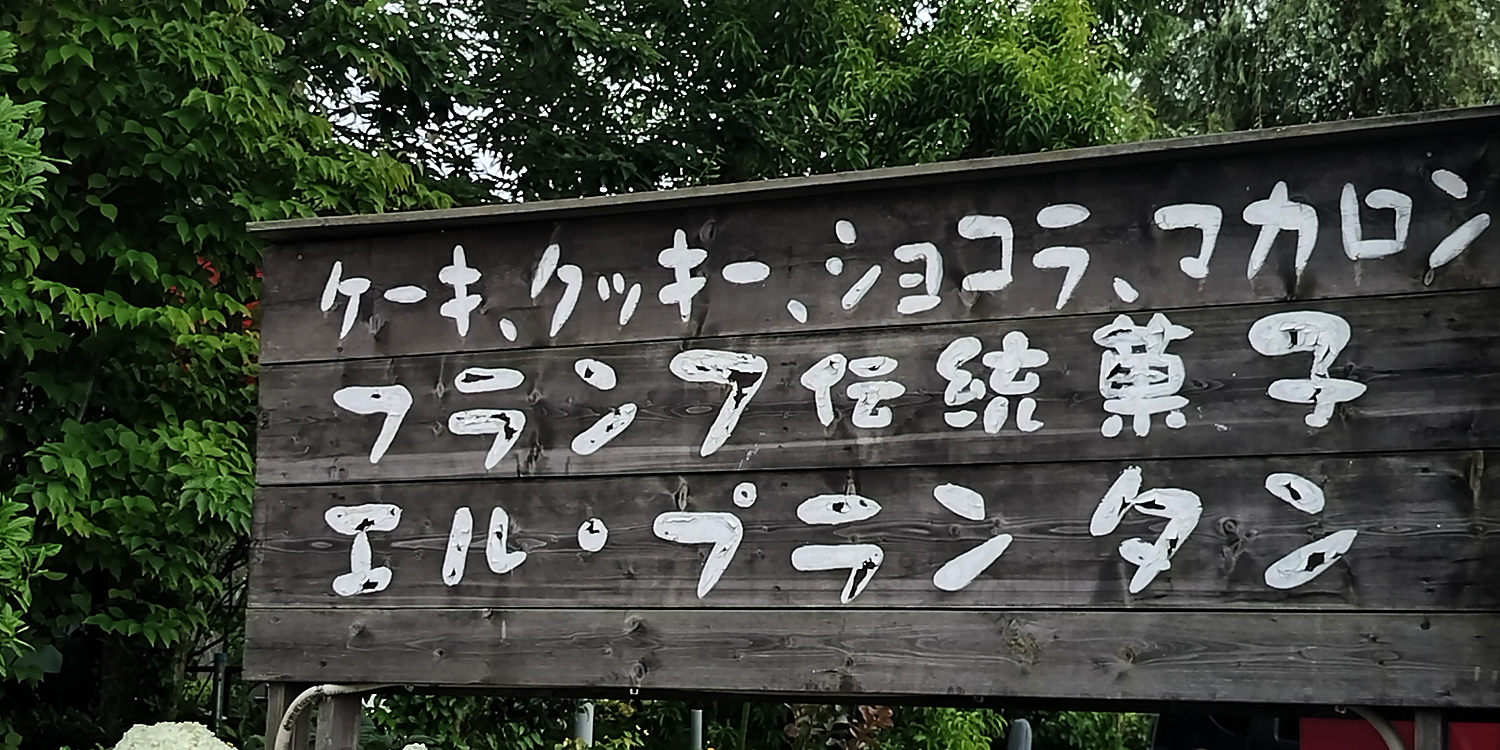 ケーキ、クッキー、ショコラ、マカロン
フランフ伝統菓子
エル・プランタン